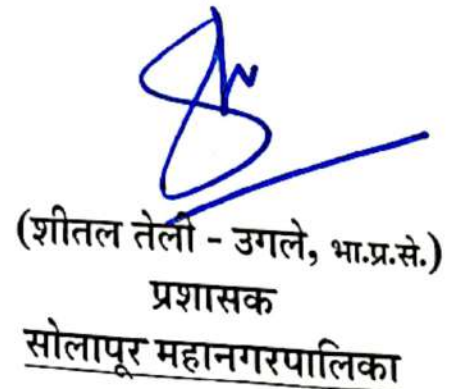 (शीतल तेली - उगले, भा.प्र.से.)
प्रशासक
सोलापूर महानगरपालिका